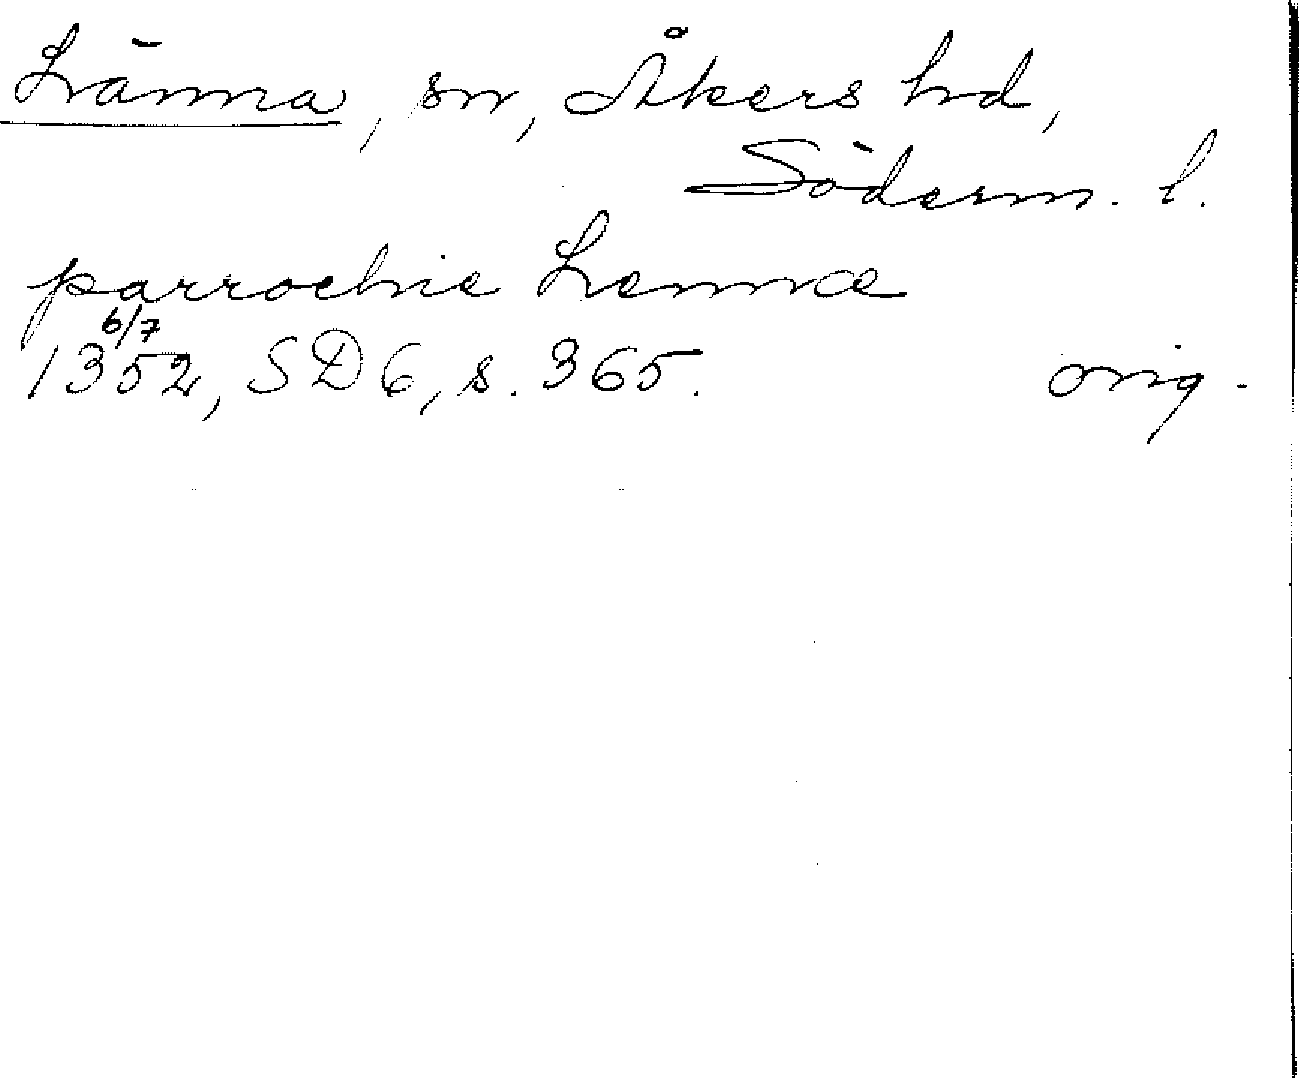 Länna, sn, Åkers hd,
Söderm. l.
parrochie Lennæ
6/7
1352, SD 6, s. 365. orig.